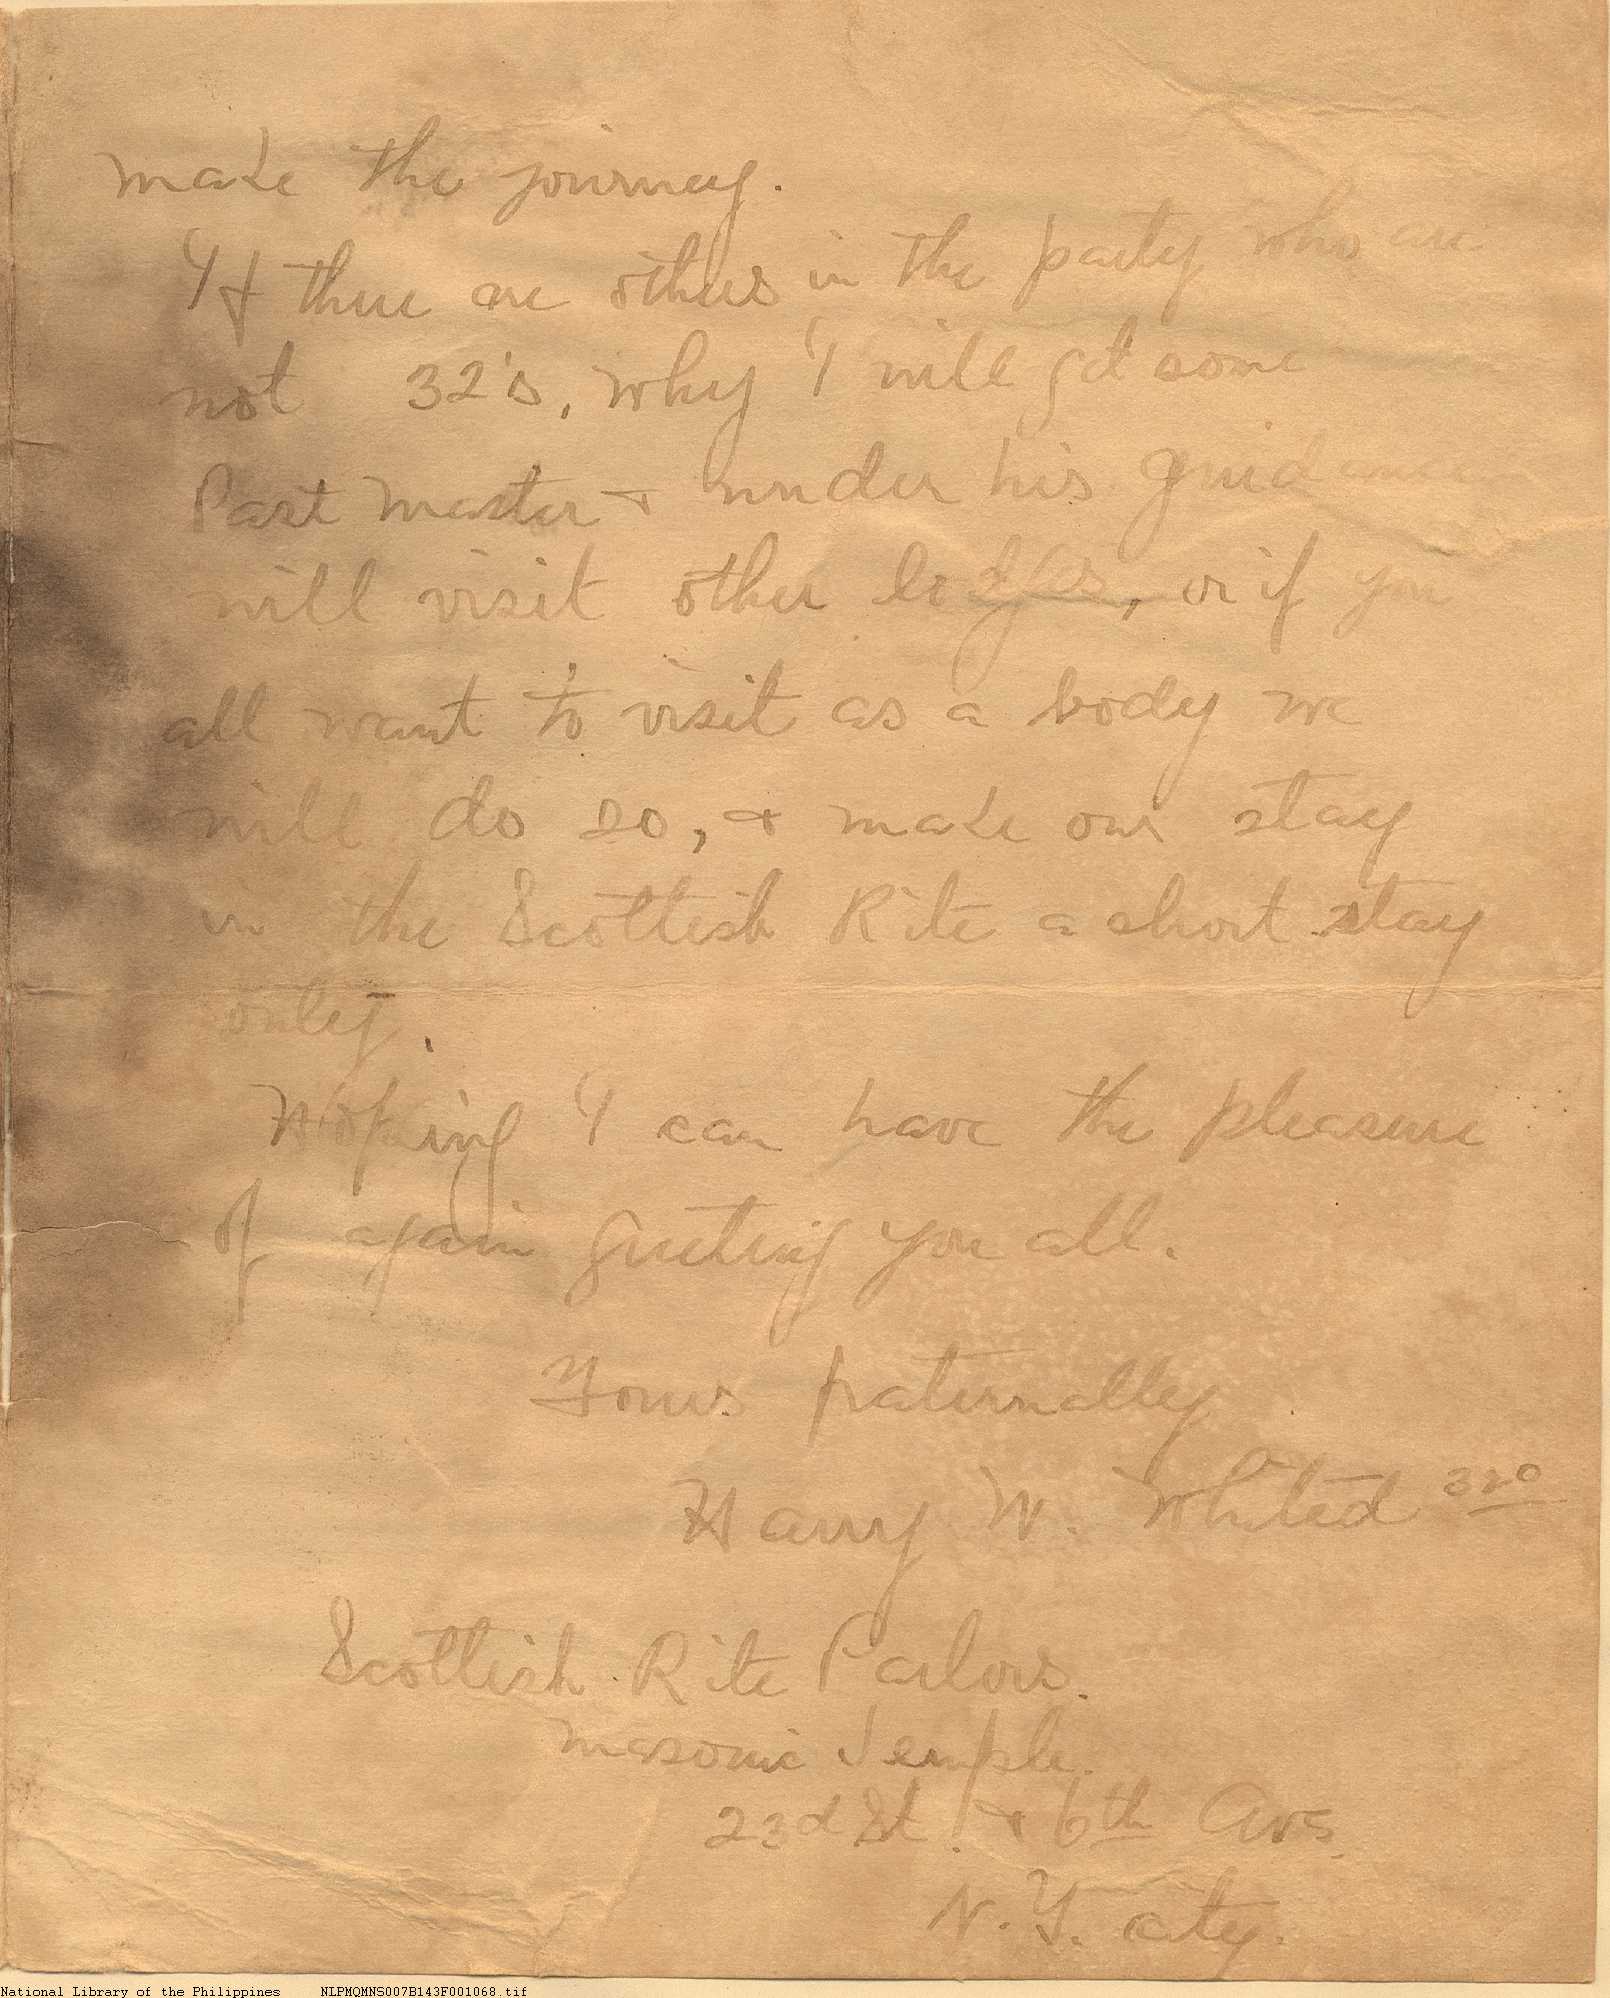 make the journey.
If there are others in the party who are
not 32's, why I will get some
Past Master & under his guidance
will visit other lodges, or if you
all want to visit as a body we
will do so, & make our stay
in the Scottish Rite a short stay
only.
Hoping I can have the pleasure
of again greeting you all.
Yours fraternally
Harry W. Whited 32º
Scottish Rite Parlors.
Masonic Temple.
23d St. & 6th Ave.
N. Y. City.
National Library of the Philippines NLPMQMNS007B143F001068.tif